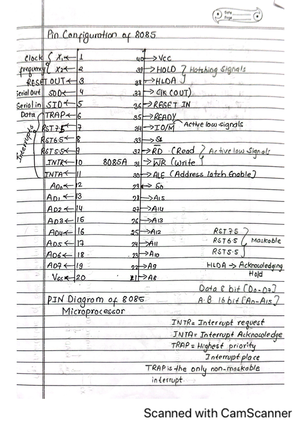 Pin Configuration of 8085
Clock { X1 ← 1 40 → Vcc
frequency { X2 ← 2 39 → HOLD
RESET OUT ← 3 38 → HLDA
Serial Out SOD ← 4 37 → CLK (OUT)
Serial in SID ← 5 36 → RESET IN
Data TRAP ← 6 35 → READY
RST 7.5 ← 7 34 → IO/M → Active low signals
RST 6.5 ← 8 33 → S1
RST 5.5 ← 9 32 → RD (Read) Active low Signals
INTR ← 10 8085A 31 → WR (Write)
INTA ← 11 30 → ALE (Address latch Enable)
Interrupts
AD0 ← 12 29 → S0
AD1 ← 13 28 → A15
AD2 ← 14 27 → A14
AD3 ← 15 26 → A13
AD4 ← 16 25 → A12
AD5 ← 17 24 → A11
AD6 ← 18 23 → A10
AD7 ← 19 22 → A9
Vss ← 20 21 → A8
RST 7.5
RST 6.5 } Maskable
RST 5.5
HLDA → Acknowledging
Hold
Data 8 bit (D0-D7)
A.B 16 bit (A0-A15)
PIN Diagram of 8085
Microprocessor
INTR = Interrupt request
INTA = Interrupt Acknowledge
TRAP = Highest priority
Interrupt place
TRAP is the only non-maskable
interrupt
Scanned with CamScanner